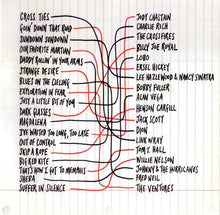 CROSS TIES
GOIN' DOWN THAT ROAD
SUNDOWN SUNDOWN
OUR FAVORITE MARTIAN
DADDY ROLLIN' IN YOUR ARMS
STRANGE DESIRE
BLUES ON THE CEILING
EXPLORATION IN FEAR
JUST A LITTLE BIT OF YOU
DARK GLASSES
MAGDALENA
I'VE WAITED TOO LONG, TOO LATE
OUT OF CONTROL
JULY A ROPE
BIG RED KITE
THAT'S HOW I GOT TO MEMPHIS
SHEBA
SUFFER IN SILENCE
JODY CHASTAIN
CHARLIE RICH
THE CROSSFIRES
BILLY JOE ROYAL
LOBO
ERSEL HICKEY
LEE HAZLEWOOD & NANCY SINATRA
BOBBY FULLER
ALAN VEGA
HENSON CARGILL
JACK SCOTT
DION
LINK WRAY
TOM T. HALL
WILLIE NELSON
JOHNNY & THE HURRICANES
FRED NEIL
THE VENTURES